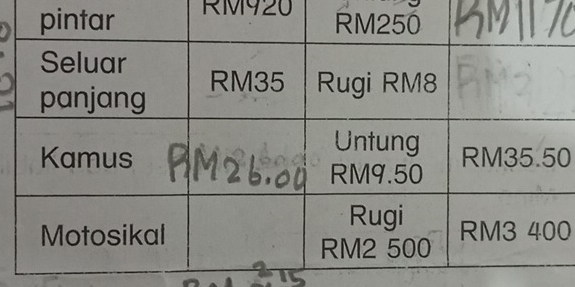 pintar RM920 RM250 RM1170
Seluar panjang RM35 Rugi RM8
Kamus RM26.00 Untung RM9.50 RM35.50
Motosikal Rugi RM2 500 RM3 400